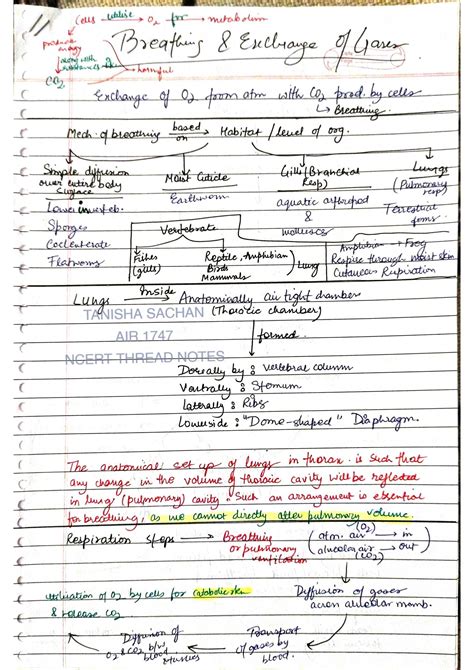 Cells utilise → O2 for → metabolism
produce energy
along with
substances
harmful
CO2
Breathing & Exchange of Gases
Exchange of O2 from atm with CO2 prod. by cells
↳ Breathing.
Mech. of breathing based on → Habitat / level of org.
Simple diffusion over entire body surface
Lower inverteb.
Sponges
Coelenterate
Flatworms
Moist Cuticle
Earthworm
Gills (Branchial Resp)
aquatic arthropod
&
molluscs
Lungs (Pulmonary resp)
Terrestrial forms.
Vertebrate
Fishes (gills)
Reptile, Amphibian
Birds
Mammals
Lung
Amphibian → Frog
Respire through moist skin
Cutaneous Respiration
Lungs Inside → Anatomically air tight chamber
(Thoracic chamber)
TANISHA SACHAN
AIR 1747
NCERT THREAD NOTES
formed
Dorsally by : vertebral column
Ventrally : Sternum
laterally : Ribs
Lowerside : "Dome-shaped" Diaphragm.
The anatomical set up of lungs in thorax is such that
any change in the volume of thoracic cavity will be reflected
in lung (pulmonary) cavity. Such an arrangement is essential
for breathing, as we cannot directly alter pulmonary volume.
Respiration steps → Breathing or pulmonary ventilation
(O2)
atm. air → in
alveolar air → out
(CO2)
Diffusion of gases
across alveolar memb.
Transport of gases by blood.
Diffusion of O2 & CO2 b/w blood
utilisation of O2 by cells for catabolic
& release CO2